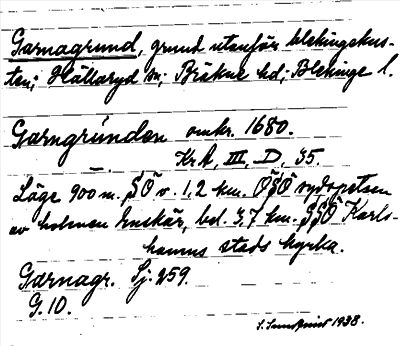 Garnagrund, grund utanför blekingskus-
ten; Hällaryd sn; Bräkne hd; Blekinge l.
Garngrunden omkr. 1680.
Krk, III, D, 35.
Läge 900 m. SÖ v. 1,2 km. ÖSÖ sydspetsen
av holmen Enskär, bel. 3,7 km. SSÖ Karls-
hamns stads kyrka.
Garnagr. Sj. 259.
G. 10.
1938.